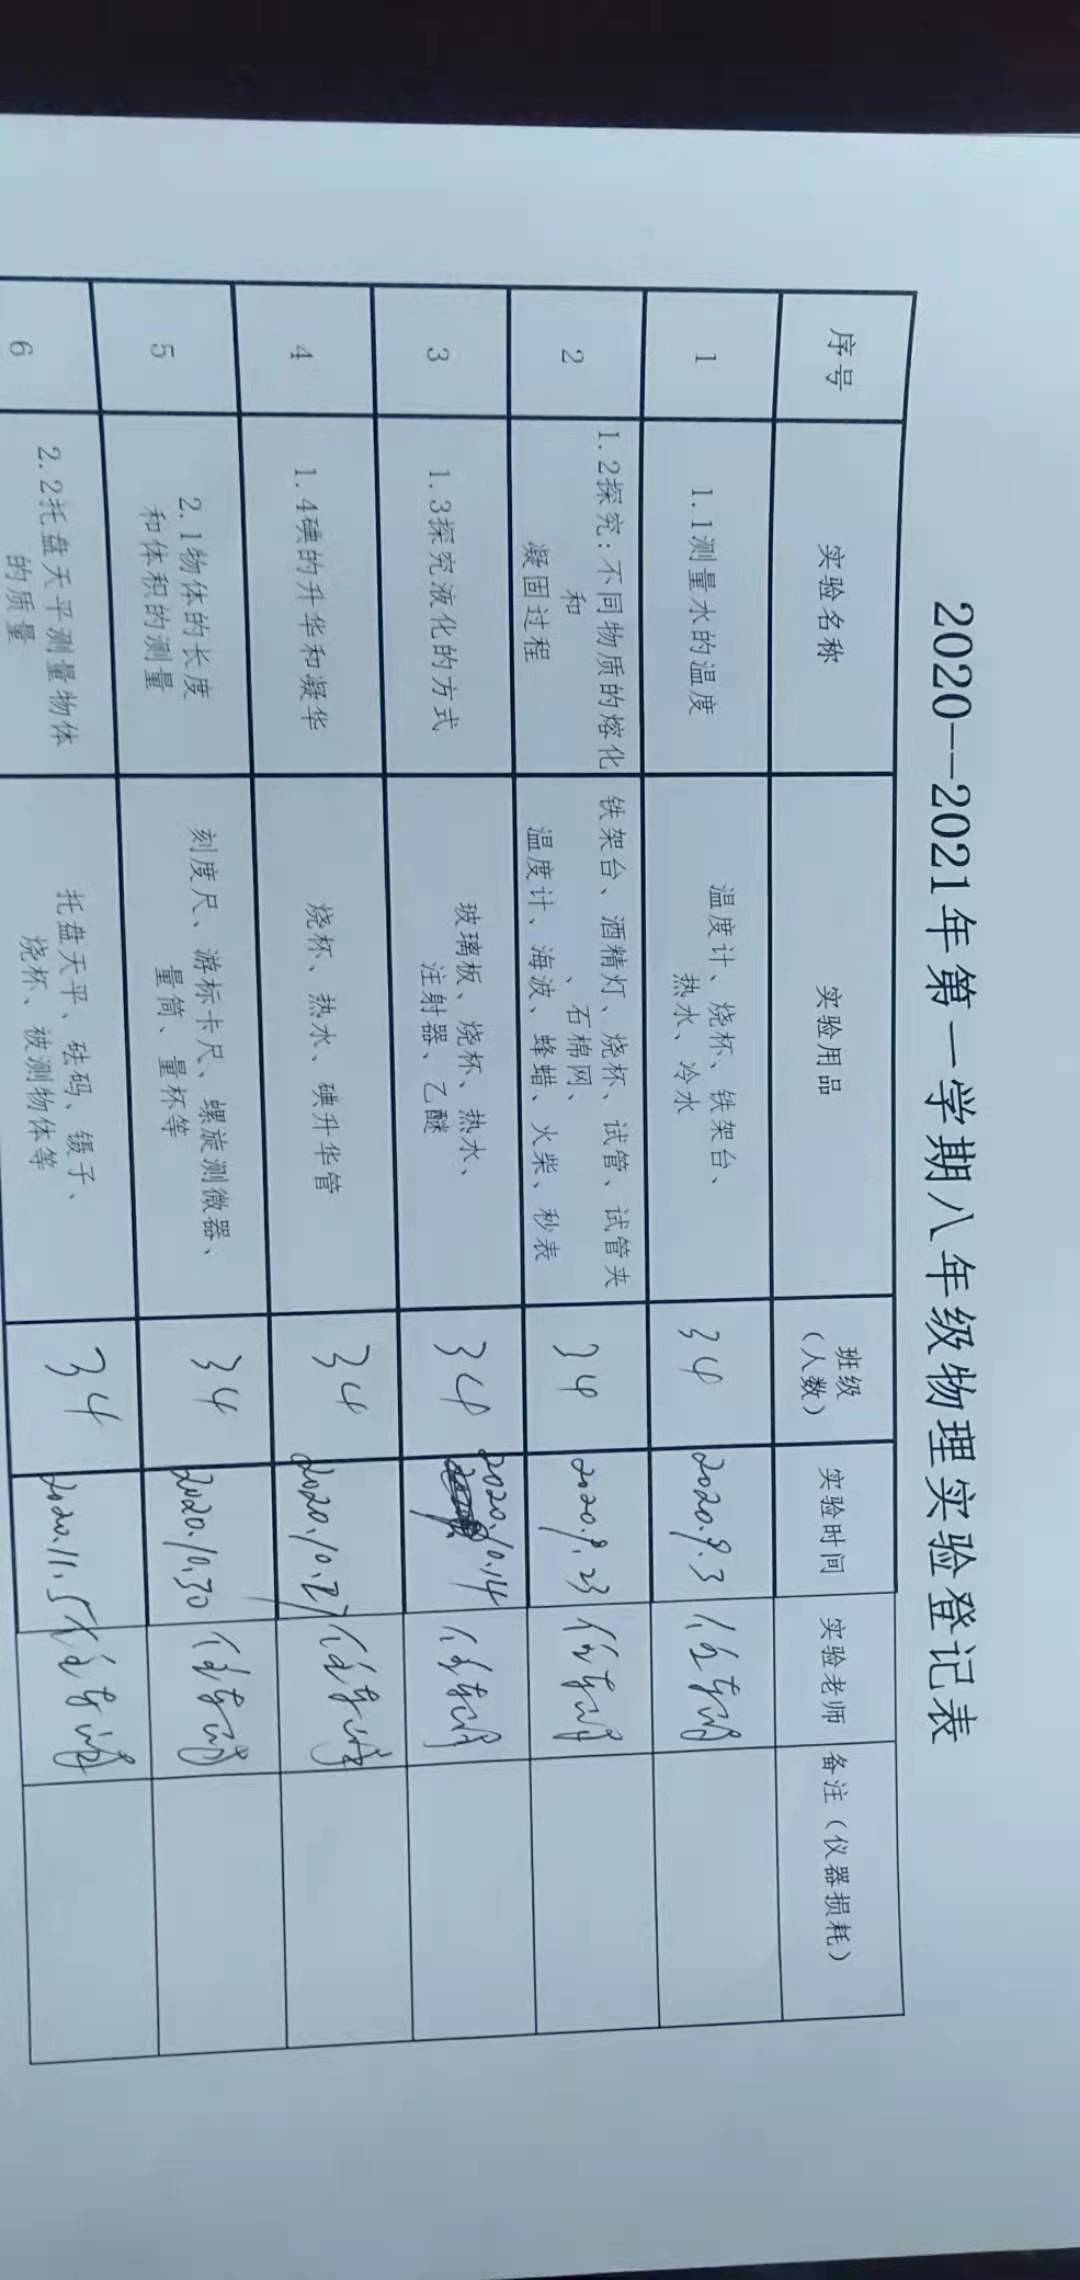 2020--2021年第一学期八年级物理实验登记表
序号 实验名称 实验用品 班级（人数） 实验时间 实验老师 备注（仪器损耗）
1 1.1测量水的温度 温度计、烧杯、铁架台、
热水、冷水 34 2020.9.3
2 1.2探究:不同物质的熔化
和
凝固过程 铁架台、酒精灯、烧杯、试管、试管夹
、石棉网、
温度计、海波、蜂蜡、火柴、秒表 34 2020.9.23
3 1.3探究液化的方式 玻璃板、烧杯、热水、
注射器、乙醚 34 2020.10.14
4 1.4碘的升华和凝华 烧杯、热水、碘升华管 34 2020.10.27
5 2.1物体的长度
和体积的测量 刻度尺、游标卡尺、螺旋测微器、
量筒、量杯等 34 2020.10.30
6 2.2托盘天平测量物体
的质量 托盘天平、砝码、镊子、
烧杯、被测物体等 34 2020.11.5